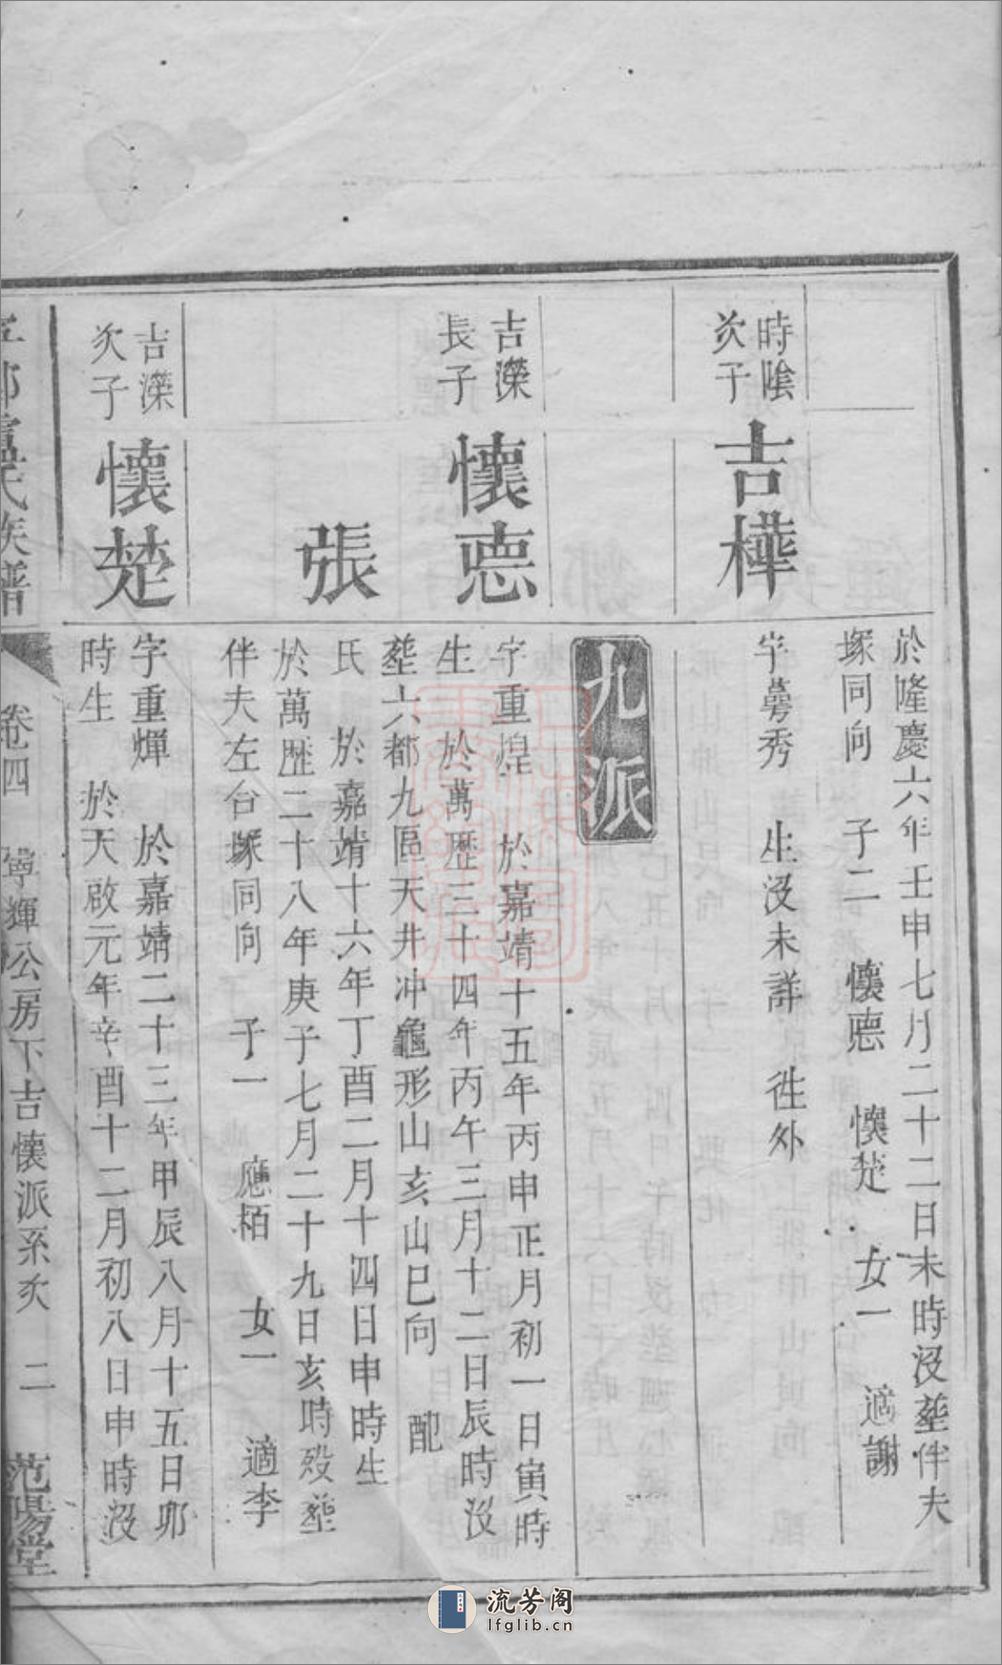 於隆慶六年壬申七月二十二日未時沒塟伴夫
塚同向 子二 懷悳 懷楚 女一 適謝
時陰
次子
吉樺
字蕚秀 生沒未詳 徃外
九派
吉濚
長子
懷悳
字重煌 於嘉靖十五年丙申正月初一日寅時
生 於萬歷三十四年丙午三月十二日辰時沒
塟六都九區天井冲龜形山亥山巳向 配
張
氏 於嘉靖十六年丁酉二月十四日申時生
於萬歷二十八年庚子七月二十九日亥時歿塟
伴夫左台塚同向 子一 應栢 女一 適李
吉濚
次子
懷楚
字重煇 於嘉靖二十三年甲辰八月十五日卯
時生 於天啟元年辛酉十二月初八日申時沒
氏族譜 卷四 寧輝公房下吉懷派系次 二 范陽堂
流芳阁
lfglib.cn